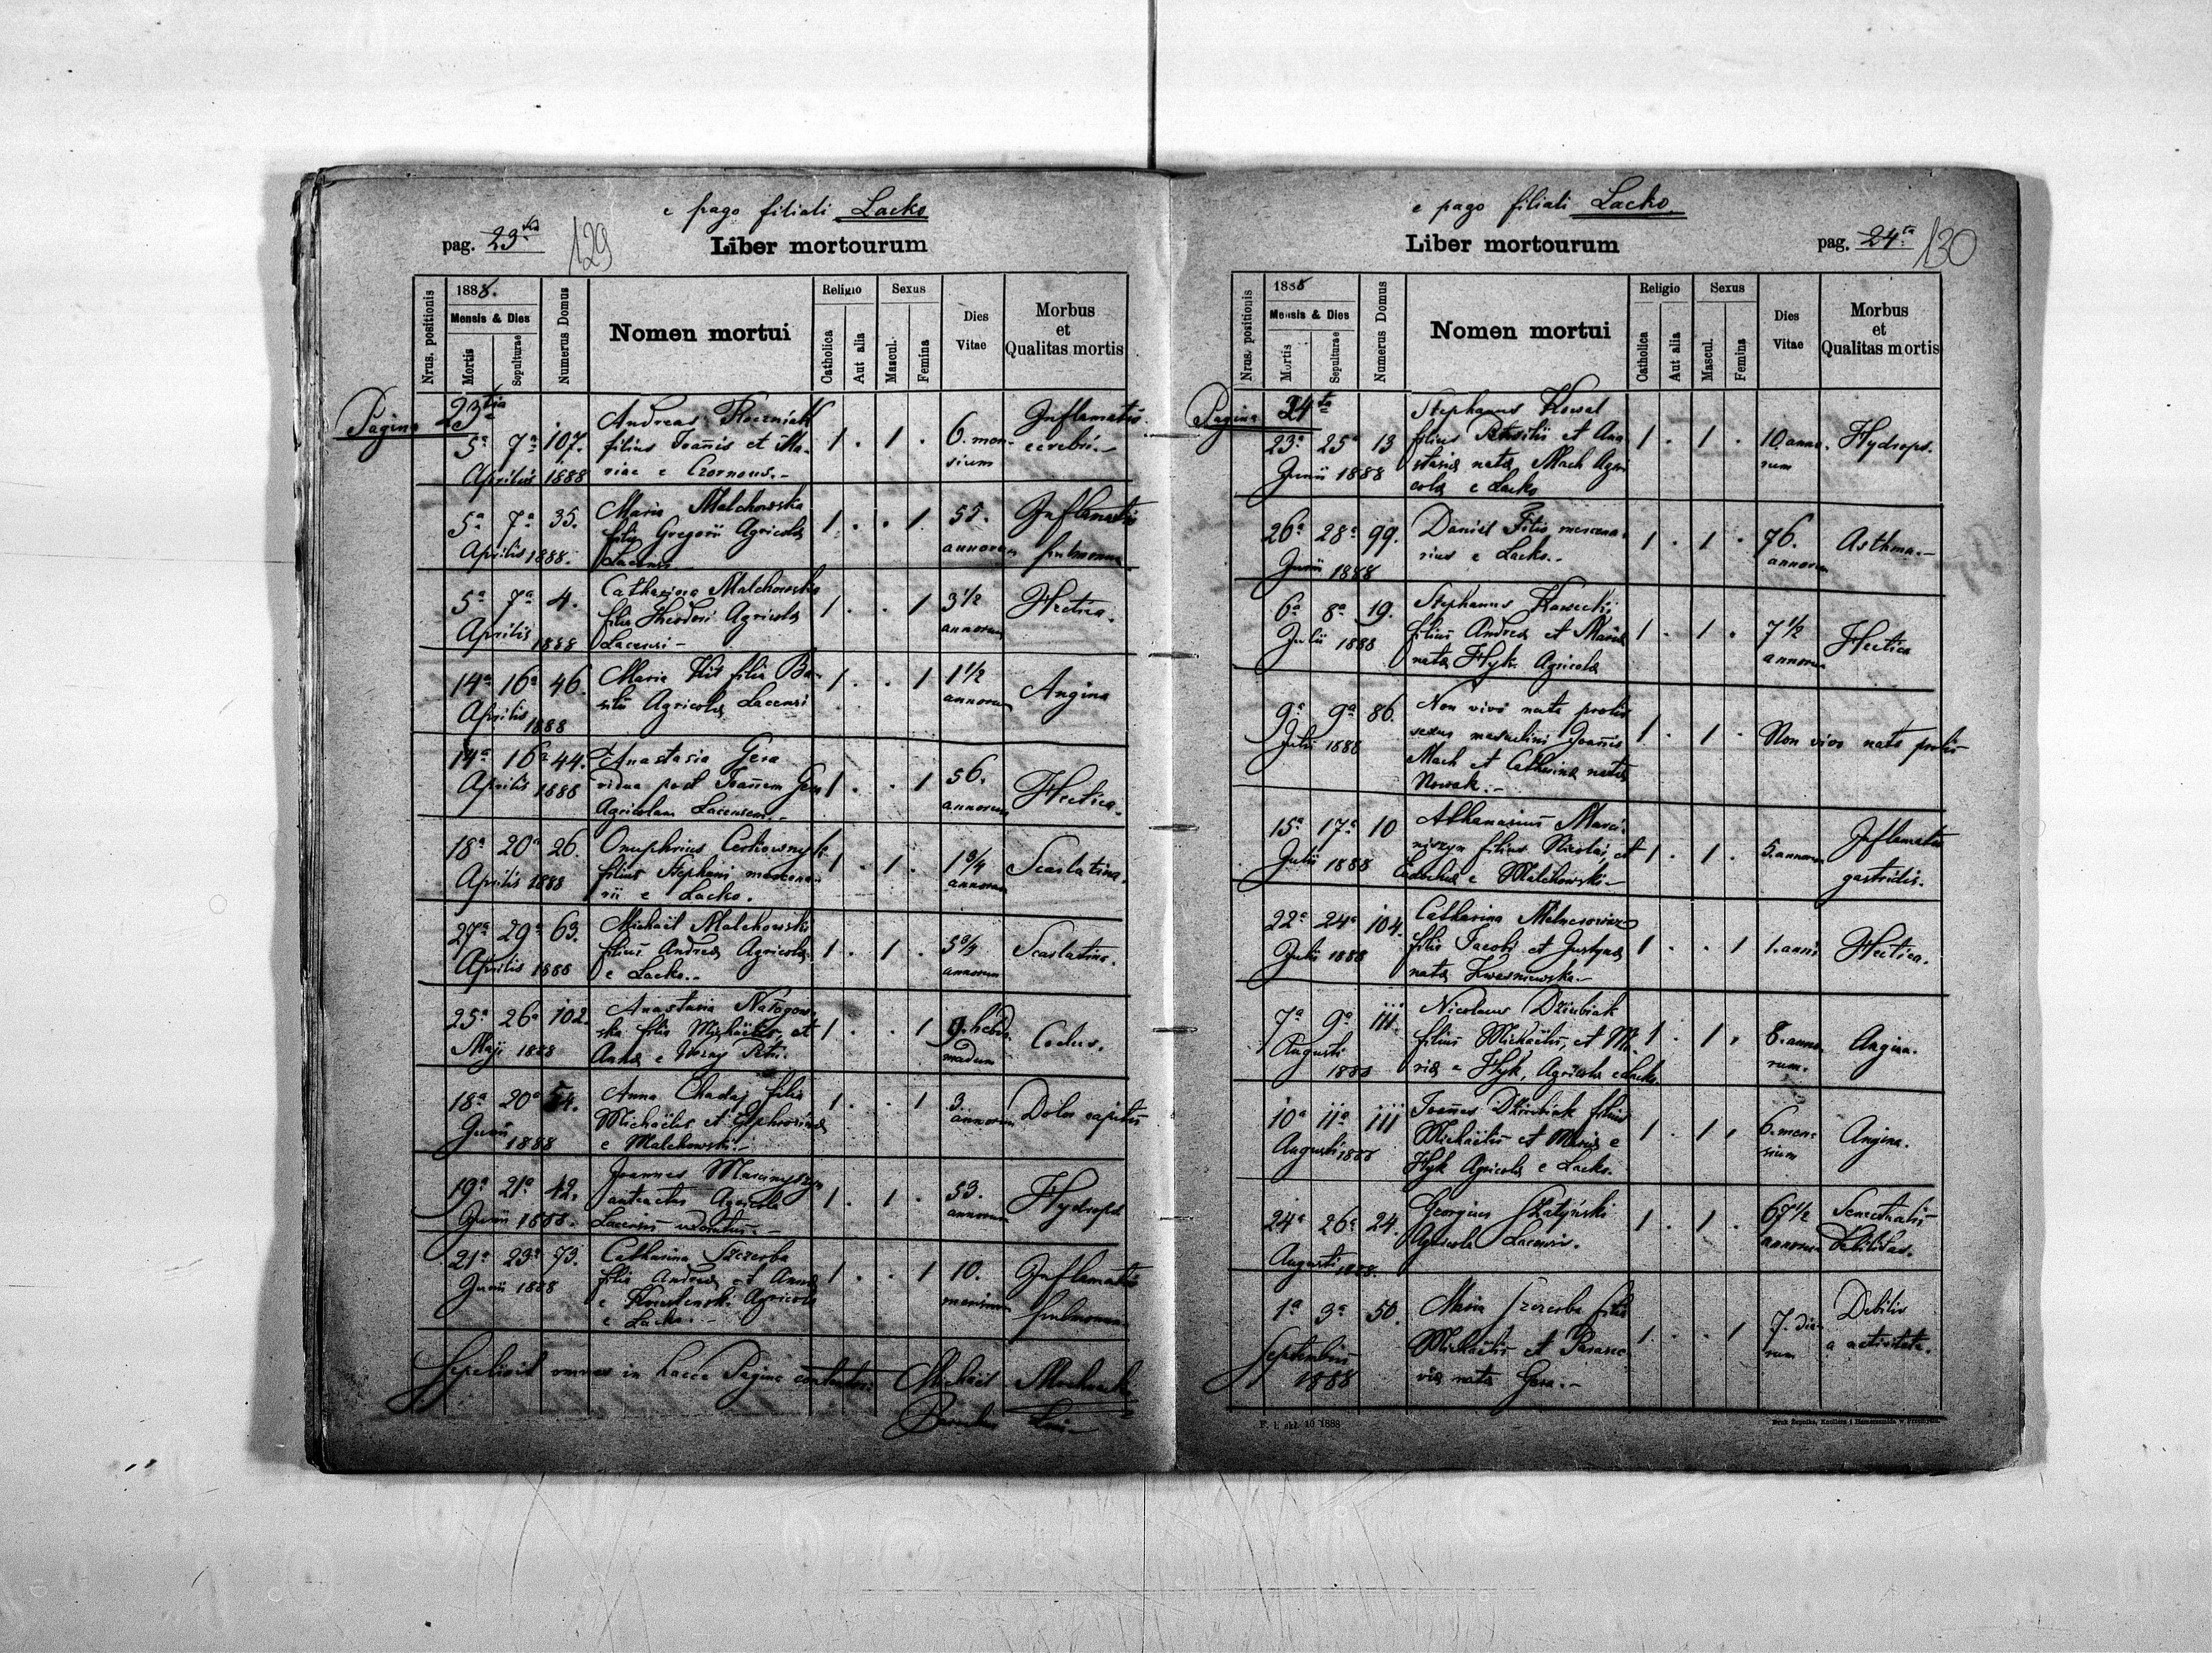 e pago filiali Lacko
pag. 23tia 129 Liber mortourum
Nrus. positionis
1888.
Mensis & Dies
Mortis
Sepulturae
Numerus Domus
Nomen mortui
Religio
Catholica
Aut alia
Sexus
Mascul.
Femina
Dies
Vitae
Morbus
et
Qualitas mortis
Pagina 23tia
5a 7a 107.
Aprilis 1888
Andreas
filius Joañis et Ma-
riae e
1 . 1 .
6. men-
sium
Inflamatio
cerebri.-
5a 7a 35.
Aprilis 1888.
Maria Malchowska
filia Gregorii Agricola
Lacensi
1 . . 1
55.
annorum
Inflamatio
pulmonum
5a 7a 4.
Aprilis 1888
Catharina Malchowska
filia Theodori Agricola
Lacensi -
1 . . 1
3 1/2
annorum
Hectica.
14a 16a 46.
Aprilis 1888
Maria Kit filia Ba-
silii Agricola Lacensi
1 . . 1
1 1/2
annorum
Angina
14a 16a 44.
Aprilis 1888
Anastasia Gera
vidua post Joañem Gera
Agricolam Lacensem.-
1 . . 1
56.
annorum
Hectica.
18a 20a 26.
Aprilis 1888
Onuphrius
filius Stephani mercena-
rii e Lacko.
1 . 1 .
1 3/4
annorum
Scarlatina.
27a 29a 63.
Aprilis 1888
Michaël Malchowski
filius Andrea Agricola
e Lacko.-
1 . 1 .
annorum
Scarlatina.
25a 26a 102.
Maji 1888
Anastasia
ska filia Michaëlis, et
Anna e
1 . . 1
9. hebdo-
madum
18a 20a 54.
Junii 1888
Anna Chadaj filia
Michaëlis et Euphrosina
e Malchowski.-
1 . . 1
3.
annorum
Dolor capitis
19a 21a 42.
Junii 1888.
Joannes Marcinyszyn
Agricola
Lacensis
1 . 1 .
53.
annorum
Hydrops
21a 23a 73.
Junii 1888
Catharina Szczerba
filia Andrea et Anna
e Agricola
e Lacko.-
1 . . 1
10.
mensium
Inflamatio
pulmonum
Sepelivit omnes in hacce Pagina contentos Michaël
e pago filiali Lacko
Liber mortourum pag. 24ta 130
Nrus. positionis
1888
Mensis & Dies
Mortis
Sepulturae
Numerus Domus
Nomen mortui
Religio
Catholica
Aut alia
Sexus
Mascul.
Femina
Dies
Vitae
Morbus
et
Qualitas mortis
Pagina 24ta
23a 25a 13
Junii 1888
Stephanus Kowal
filius et Ana-
stasia nata Mach Agri-
cola e Lacko
1 . 1 .
10 anno-
rum
Hydrops.
26a 28a 99.
Junii 1888
Daniel mercena-
rius e Lacko.-
1 . 1 .
76.
annorum
Asthma.-
6a 8a 19.
Julii 1888
Stephanus
filius Andrea et Maria
nata Hyk Agricola
1 . 1 .
7 1/2
annorum
Hectica
9a 9a 86.
Julii 1888
Non vivo nata prolis
sexus masculini Joañis
Mach et Catharina nata
Nowak.-
1 . 1 .
Non vivo nata prolis
15a 17a 10
Julii 1888
Athanasius Marci-
niszyn filius Nicolai, et
Eudochia e Malchowski-
1 . 1 .
5. annorum
Inflamatio
gastridis.
22a 24a 104.
Julii 1888
Catharina
filia Jacobi et Justyna
nata Kwasniewska.-
1 . . 1
1. anni
Hectica.
7a 9a 111.
Augusti
1888
Nicolaus Dziubiak
filius Michaëlis, et Ma-
ria e Hyk, Agricola e Lacko
1 . 1 .
8. anno-
rum.
Angina.
10a 11a 111
Augusti 1888
Joañes Dziubiak filius
Michaëlis et Maria e
Hyk Agricola e Lacko.
1 . 1 .
6. men-
sium
Angina.
24a 26a 24.
Augusti 1888.
Georgius
Agricola Lacensis.
1 . 1 .
67 1/2
annorum
debilitas.
1a 3a 50.
Septembris
1888
Maria Szczerba filia
Michaëlis et Parasce-
via nata Gera.-
1 . . 1
7. die-
rum
Debilis
a
F. l. skł. 10 1888